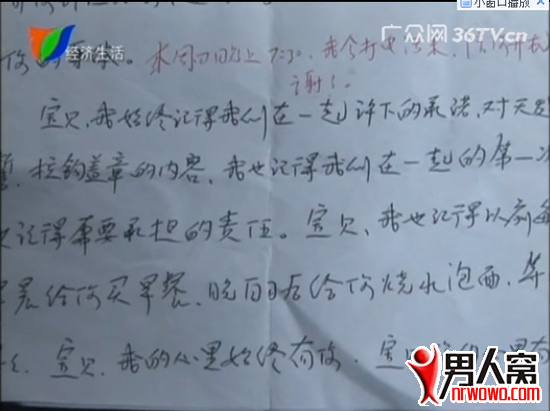 小窗口播放
经济生活
广众网36TV.cn
你的
本周四晚上7:30,我会打电话来,
谢!
宝贝,我始终记得我们在一起许下的承诺,对天发
誓,拉钩盖章的内容,我也记得我们在一起的第一次
也记得需要承担的责任。宝贝,我也记得以前每
早晨给你买早餐,晚自习后给你烧水泡面,
宝贝,我的心里始终有你,宝
男人窝
nrwowo.com